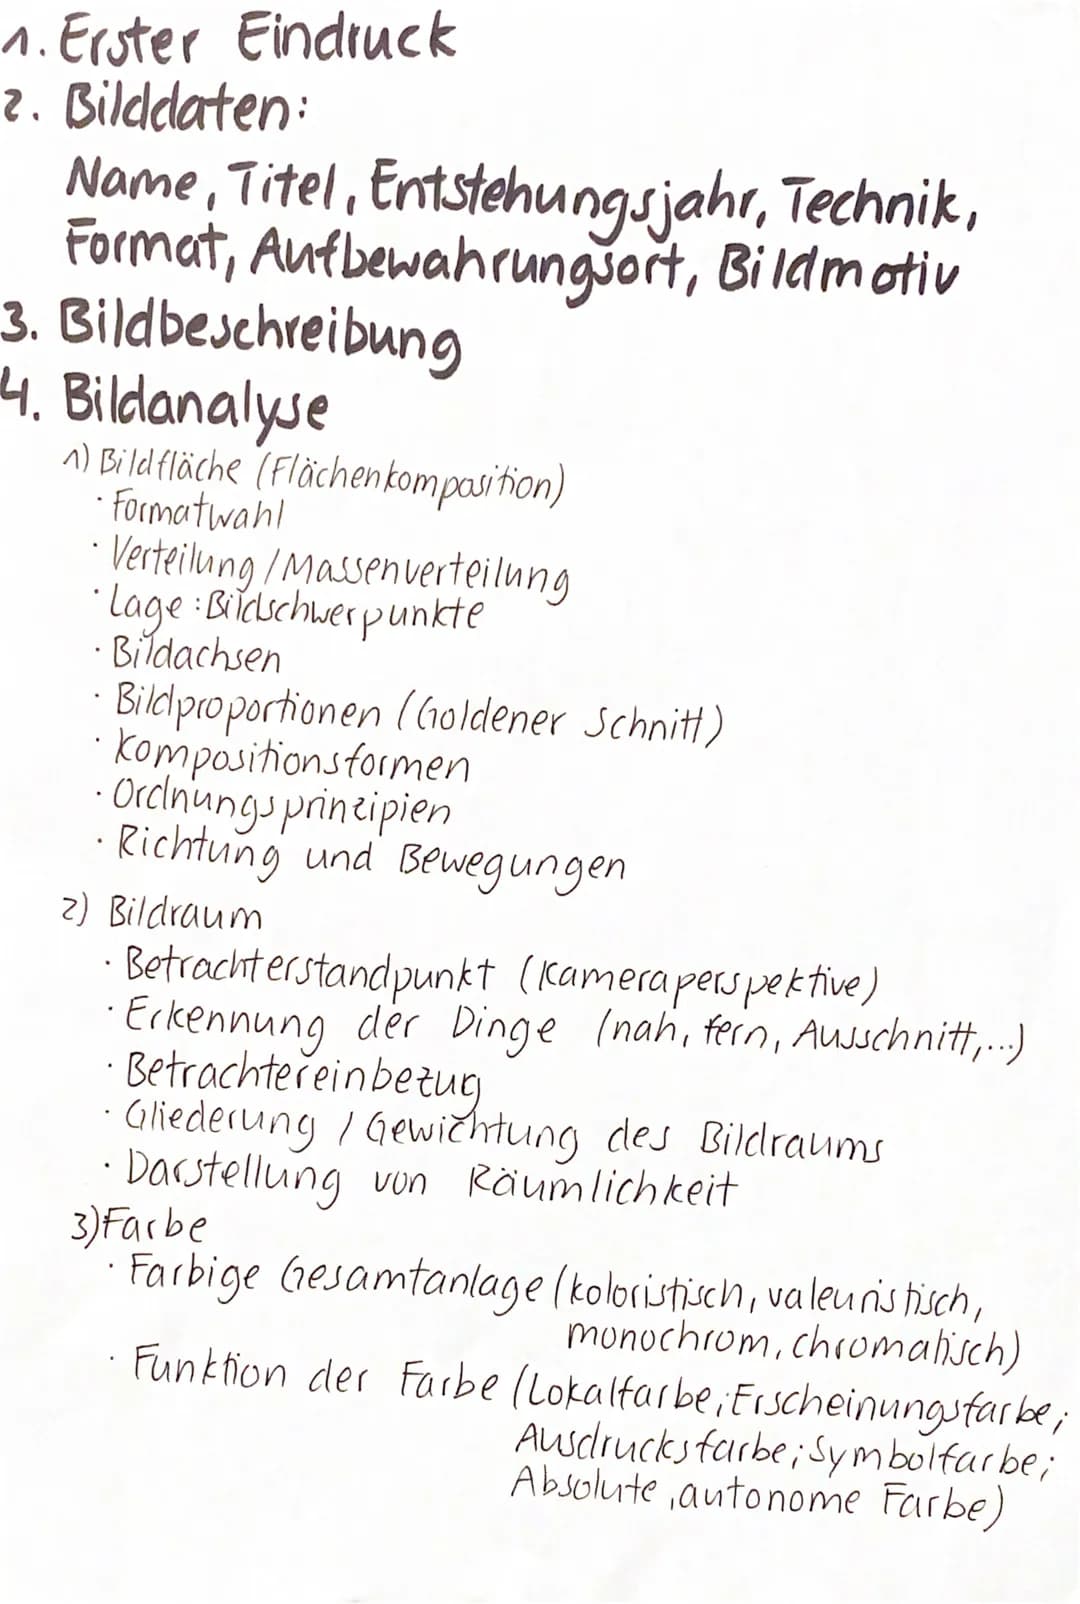 1. Erster Eindruck
2. Bilddaten:
Name, Titel, Entstehungsjahr, Technik,
Format, Aufbewahrungsort, Bildmotiv
3. Bildbeschreibung
4. Bildanalyse
1) Bildfläche (Flächenkomposition)
· Formatwahl
· Verteilung / Massenverteilung
· Lage : Bildschwerpunkte
· Bildachsen
· Bildproportionen (Goldener Schnitt)
· Kompositionsformen
· Ordnungsprinzipien
· Richtung und Bewegungen
2) Bildraum
· Betrachterstandpunkt (Kameraperspektive)
· Erkennung der Dinge (nah, fern, Ausschnitt,...)
· Betrachtereinbezug
· Gliederung / Gewichtung des Bildraums
· Darstellung von Räumlichkeit
3) Farbe
· Farbige Gesamtanlage (koloristisch, valeuristisch,
monochrom, chromatisch)
· Funktion der Farbe (Lokalfarbe; Erscheinungsfarbe;
Ausdrucksfarbe; Symbolfarbe;
Absolute, autonome Farbe)